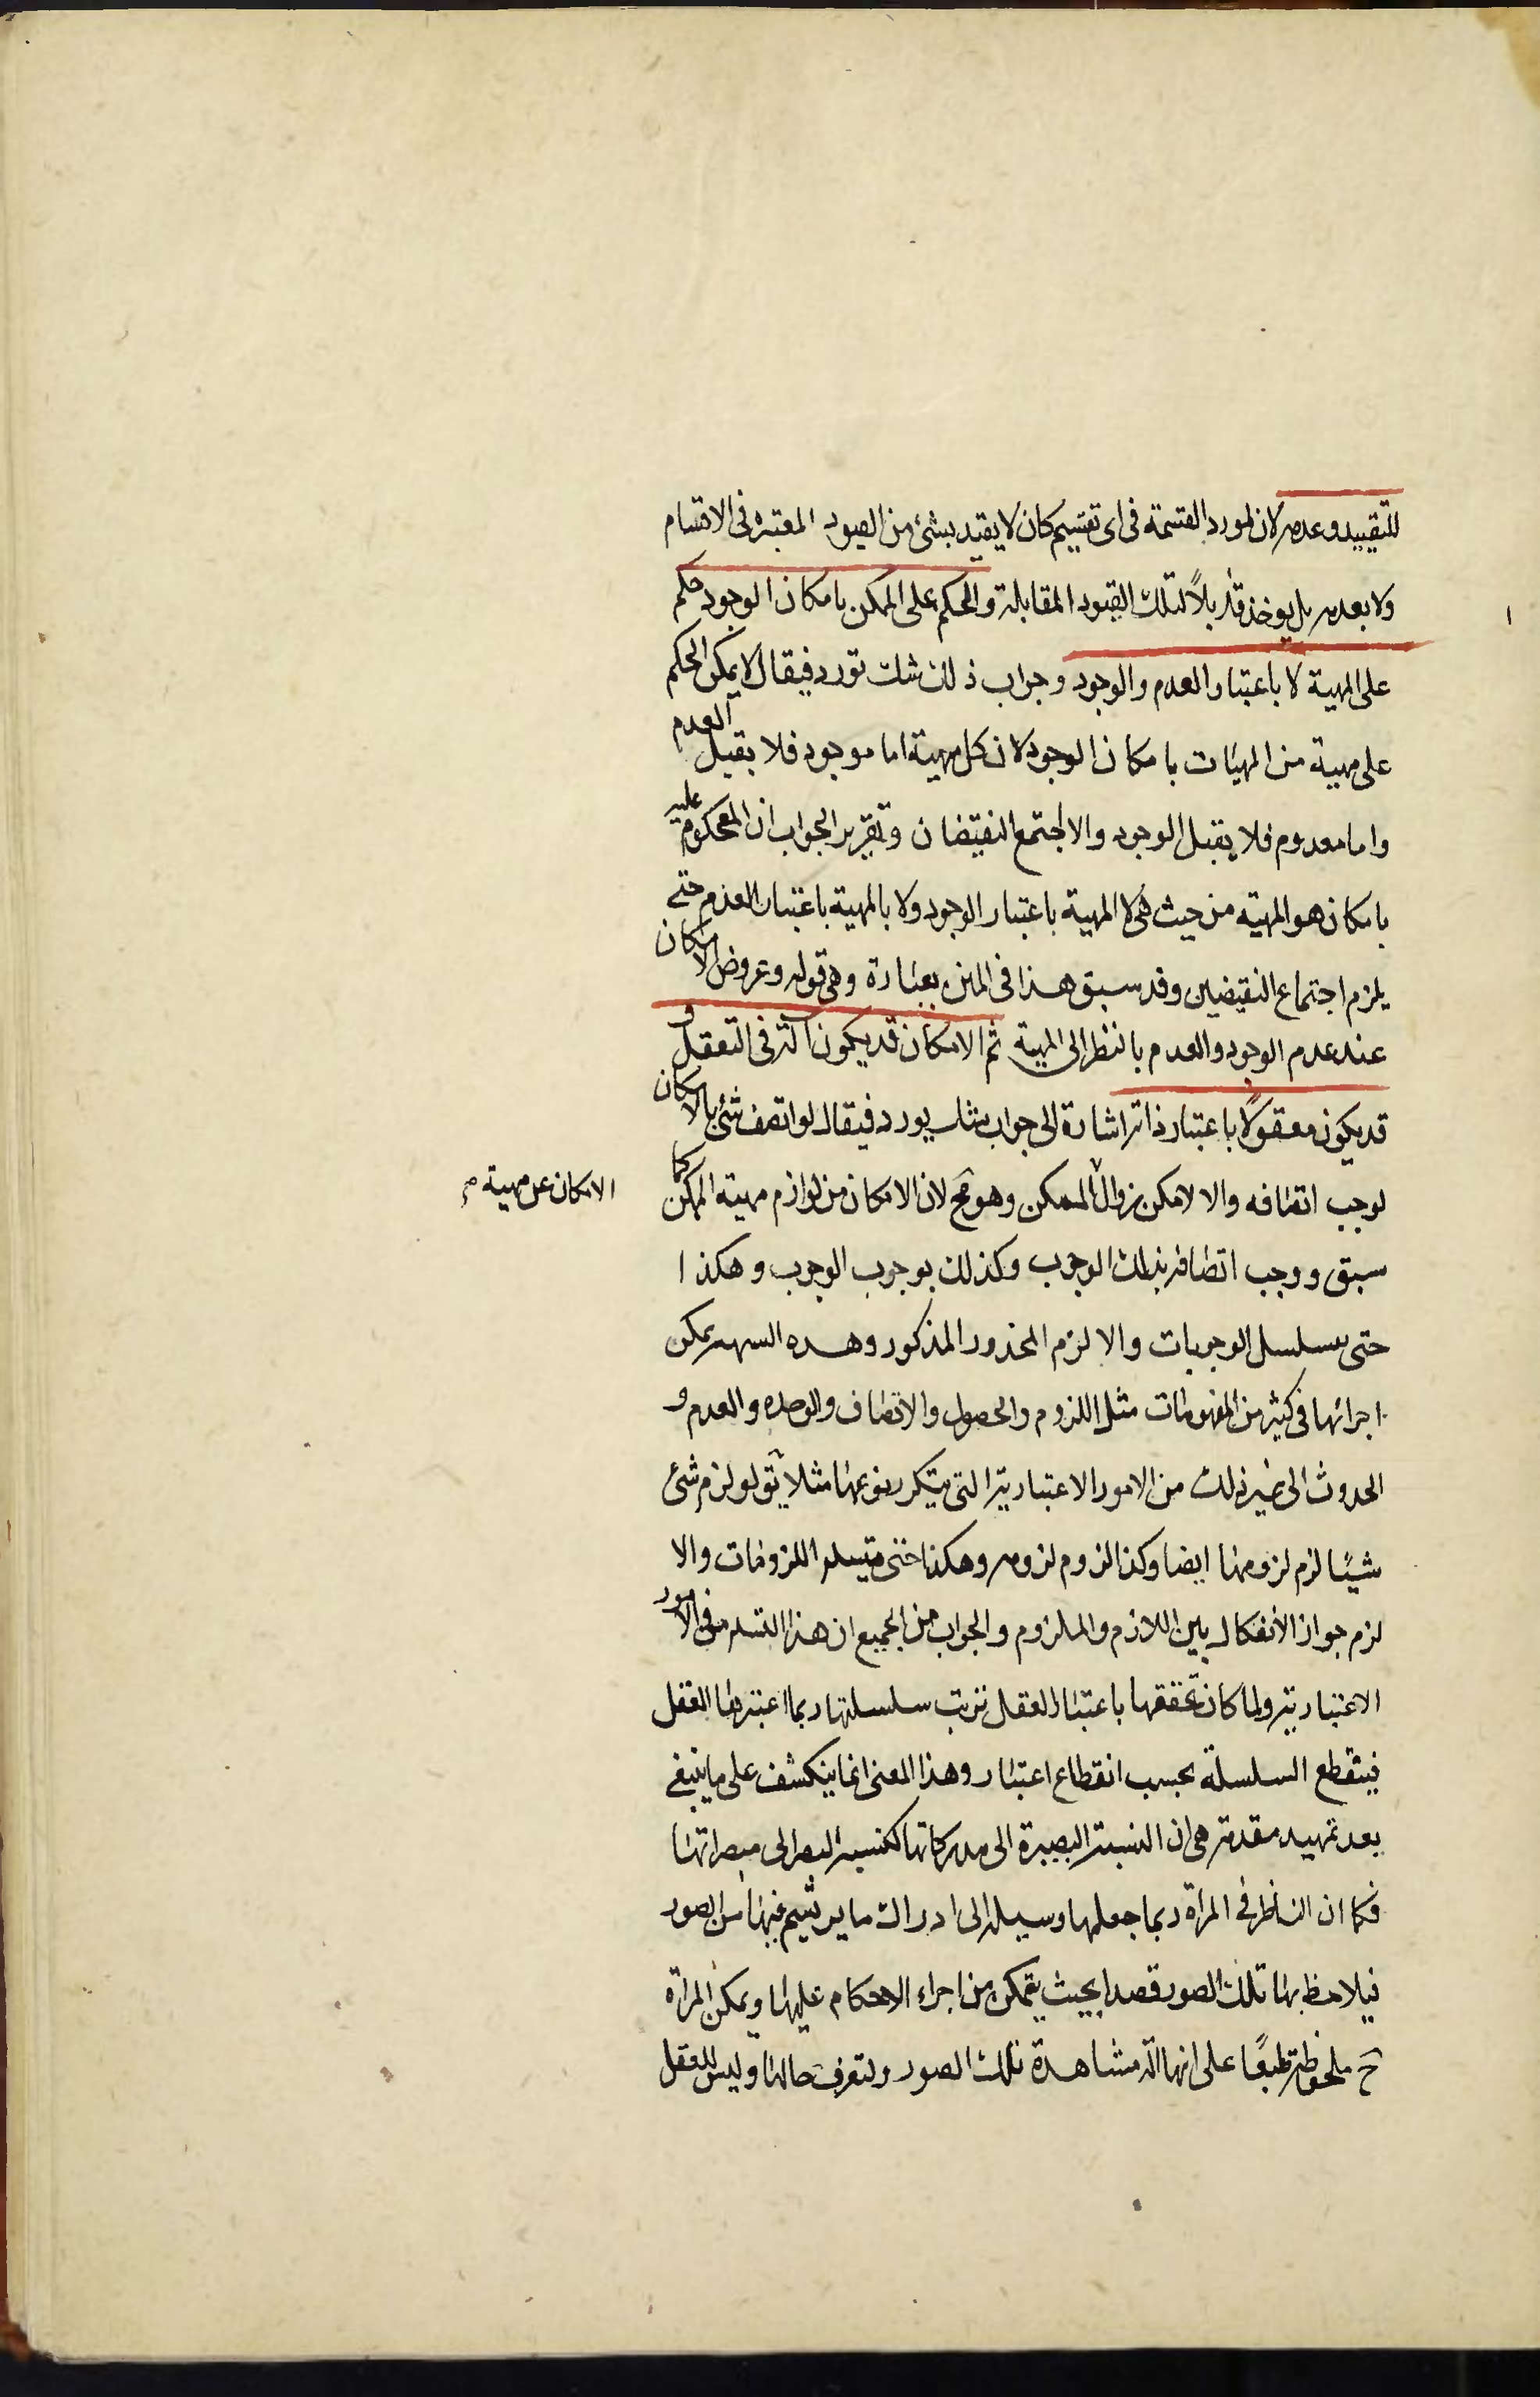 للتقييد وعدمه لان المورد القسمة فى اى تقسيم كان لا يقيد بشئ من القيود المعتبرة فى الاقسام
ولا بعدمه بل يوخذ قابلاً لتلك القيود المقابلة والحكم على الممكن بامكان الوجود حكم
على المهية لا باعتبار العدم والوجود وجواب ذلك شك تورد فيقال لا يمكن الحكم
على مهية من المهيات بامكان الوجود لان كل مهية اما موجود فلا يقبل العدم
واما معدوم فلا يقبل الوجود والا لاجتمع النقيضان وتقرير الجواب ان المحكوم عليه
بامكان هو المهية من حيث هى لا المهية باعتبار الوجود ولا بالمهية باعتبار العدم حتى
يلزم اجتماع النقيضين وقد سبق هذا فى المتن بعبارة وهى قوله وعروض الامكان
عند عدم الوجود والعدم بالنظر الى المهية ثم الامكان قد يكون آلة فى التعقل و
قد يكون معقولاً باعتبار ذاته اشارة الى جواب شك يورد فيقال لو اتصف شئ بالامكان
لوجب اتصافه والا لامكن زوال الممكن وهو مح لان الامكان من لوازم مهية الممكن كما
الامكان عن مهية م
سبق ووجب اتصافه بذلك الوجوب وكذلك بوجوب الوجوب وهكذا
حتى يتسلسل الوجوبات والا لزم المحذور المذكور وهذه الشبهة يمكن
اجرائها فى كثير من المفهومات مثل اللزوم والحصول والاتصاف والوحدة والعدم و
الحدوث الى غير ذلك من الامور الاعتبارية التى يتكرر نوعها مثلا يق لو لزم شئ
شيئا لزم لزومها ايضا وكذا لزوم لزومه وهكذا حتى يتسلسل اللزومات والا
لزم جواز الانفكاك بين اللازم والملزوم والجواب من الجميع ان هذا التسلسل فى الامور
الاعتبارية ولما كان تحققها باعتبار العقل ترتب سلسلتها ربما اعتبرها العقل
فينقطع السلسلة بحسب انقطاع اعتبار وهذا المعنى انما ينكشف على ما ينبغى
بعد تمهيد مقدمة هى ان النسبة البصيرة الى مدركاتها كنسبة البصر الى مبصراتها
فكما ان الناظر فى المراة ربما جعلها وسيلة الى ادراك ما يرتسم فيها من الصور
فيلاحظ بها تلك الصور قصدا بحيث يتمكن من اجراء الاحكام عليها ويمكن المراة
ح ملحوظة طبعًا على انها آلة مشاهدة تلك الصور ولتعرف حالها وليس للعقل